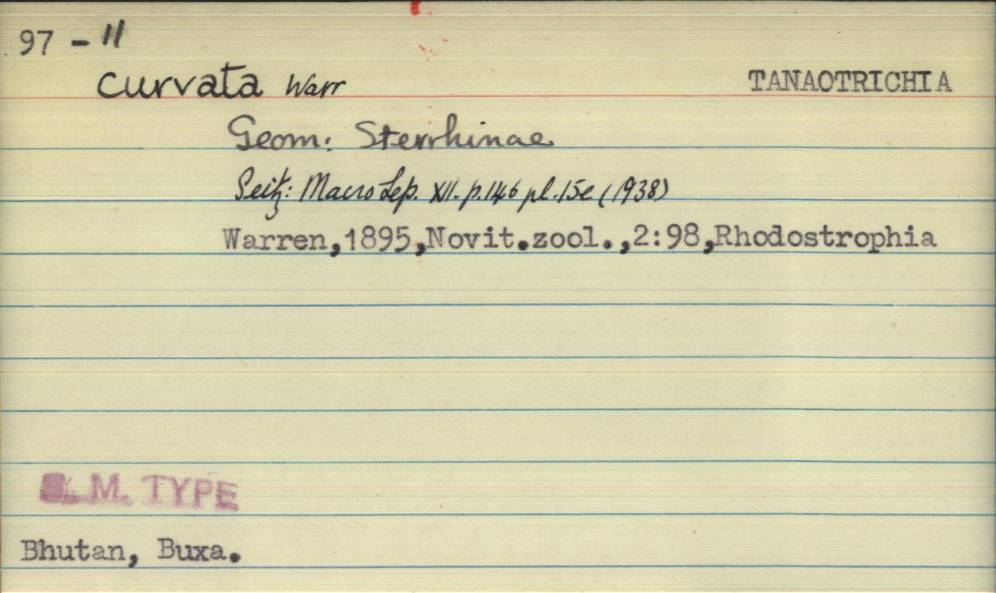 97 - 11
curvata Warr TANAOTRICHIA
Geom: Sterrhinae
Seitz: Macro Lep. XII. p.146 pl.15e (1938)
Warren,1895,Novit.zool.,2:98,Rhodostrophia
M. TYPE
Bhutan, Buxa.